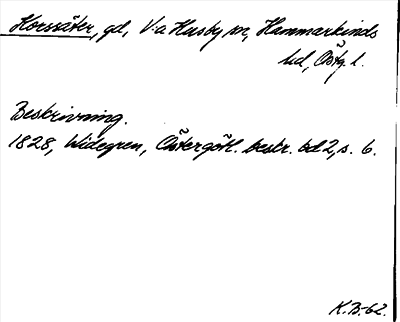 Horssäter, gd, V:a Husby sn, Hammarkinds
hd, Östg. l.
Beskrivning.
1828, Widegren, Östergötl. beskr. bd 2, s. 6.
K.B-62.